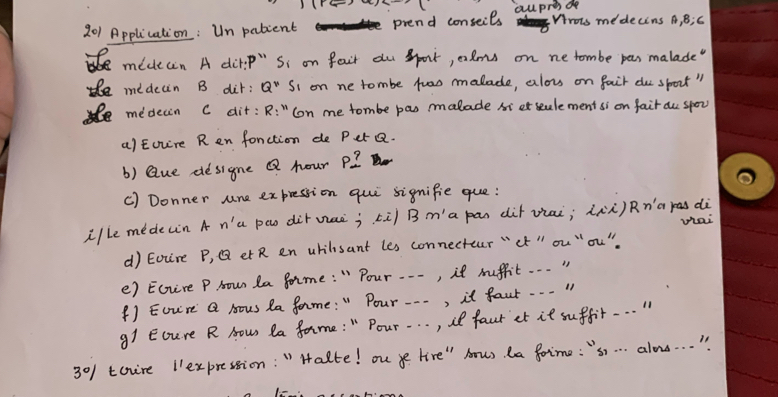 auprès de
20/ Application : Un patient prend conseils trois médecins A, B, C
Le médecin A dit : P " Si on fait du sport, alors on ne tombe pas malade"
Le médecin B dit : Q " Si on ne tombe pas malade, alors on fait du sport"
Le médecin C dit : R : " On ne tombe pas malade si et seulement si on fait du spor
a) Ecrire R en fonction de P et Q.
b) Que désigne Q pour P?
c) Donner une expression qui signifie que :
i/ Le médecin A n'a pas dit vrai ; ii) B n'a pas dit vrai ; iii) R n'a pas di
vrai
d) Ecrire P, Q et R en utilisant les connecteur "et" ou "ou".
e) Ecrire P sous la forme : " Pour ---, il suffit --- "
f) Ecrire Q sous la forme : " Pour ---, il faut --- "
g) Ecrire R sous la forme : " Pour ---, il faut et il suffit --- "
30/ Ecrire l'expression : " Halte ! ou je tire" sous la forme : "si --- alors --- ".